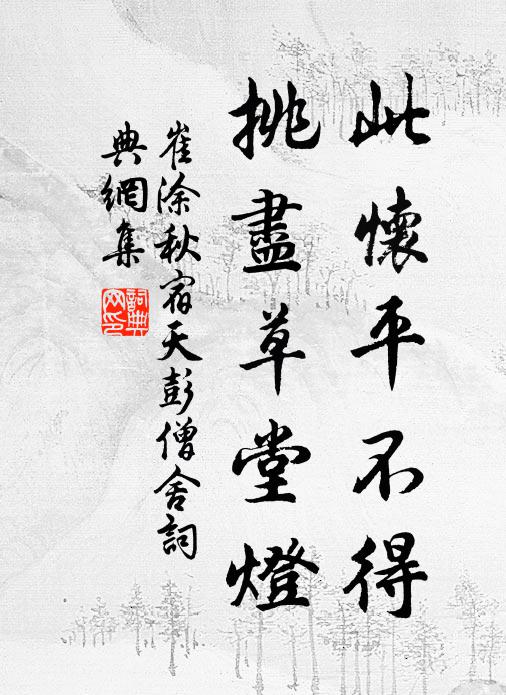 此懷平不得
挑盡草堂燈
崔涂秋宿天彭僧舍詞
典網集
詞典網印